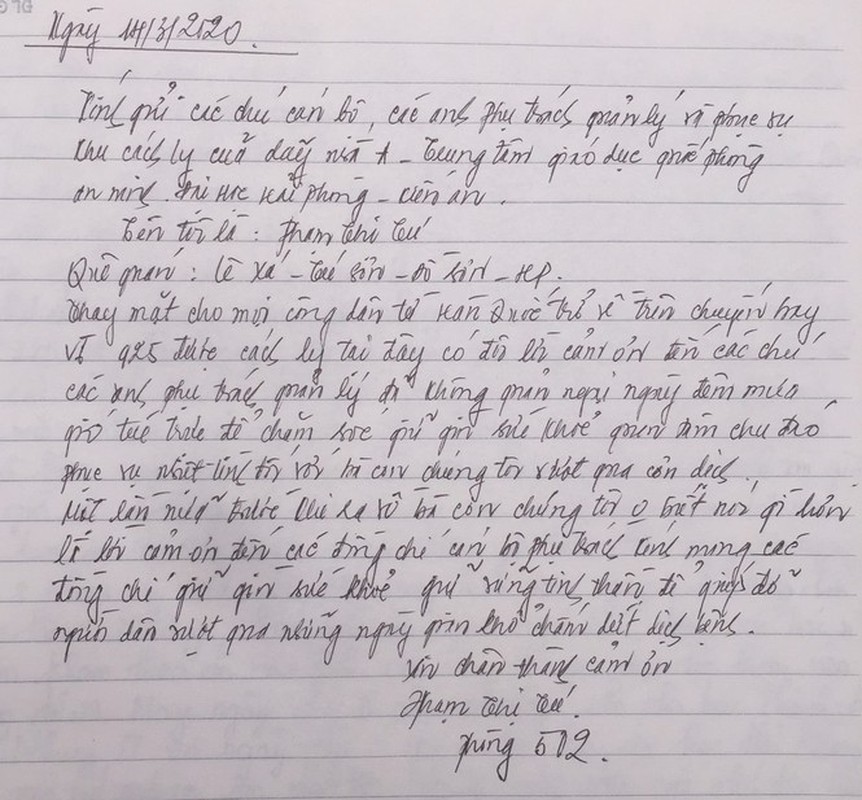 Ngày 14/3/2020.
Kính gửi các chú cán bộ, các anh phụ trách quản lý và phục vụ
khu cách ly của dãy nhà A - Trung tâm giáo dục quốc phòng
an ninh. Đại học Hải Phòng - Kiến An.
Tên tôi là : Phạm Thị Tú
Quê quán : Lê Xá - Tú Sơn - Đồ Sơn - HP.
Thay mặt cho mọi công dân từ Hàn Quốc trở về trên chuyến bay
VJ 925 được cách ly tại đây có đôi lời cảm ơn đến các chú
các anh phụ trách quản lý đã không quản ngại ngày đêm mưa
gió túc trực để chăm sóc giữ gìn sức khoẻ quan tâm chu đáo
phục vụ nhiệt tình đối với bà con chúng tôi vượt qua cơn dịch.
Một lần nữa trước khi ra về bà con chúng tôi o biết nói gì hơn
là lời cảm ơn đến các đồng chí cán bộ phụ trách kính mong các
đồng chí giữ gìn sức khoẻ giữ vững tinh thần để giúp đỡ
người dân vượt qua những ngày gian khó chấm dứt dịch bệnh.
Xin chân thành cảm ơn
Phạm Thị Tú.
Phòng 502.